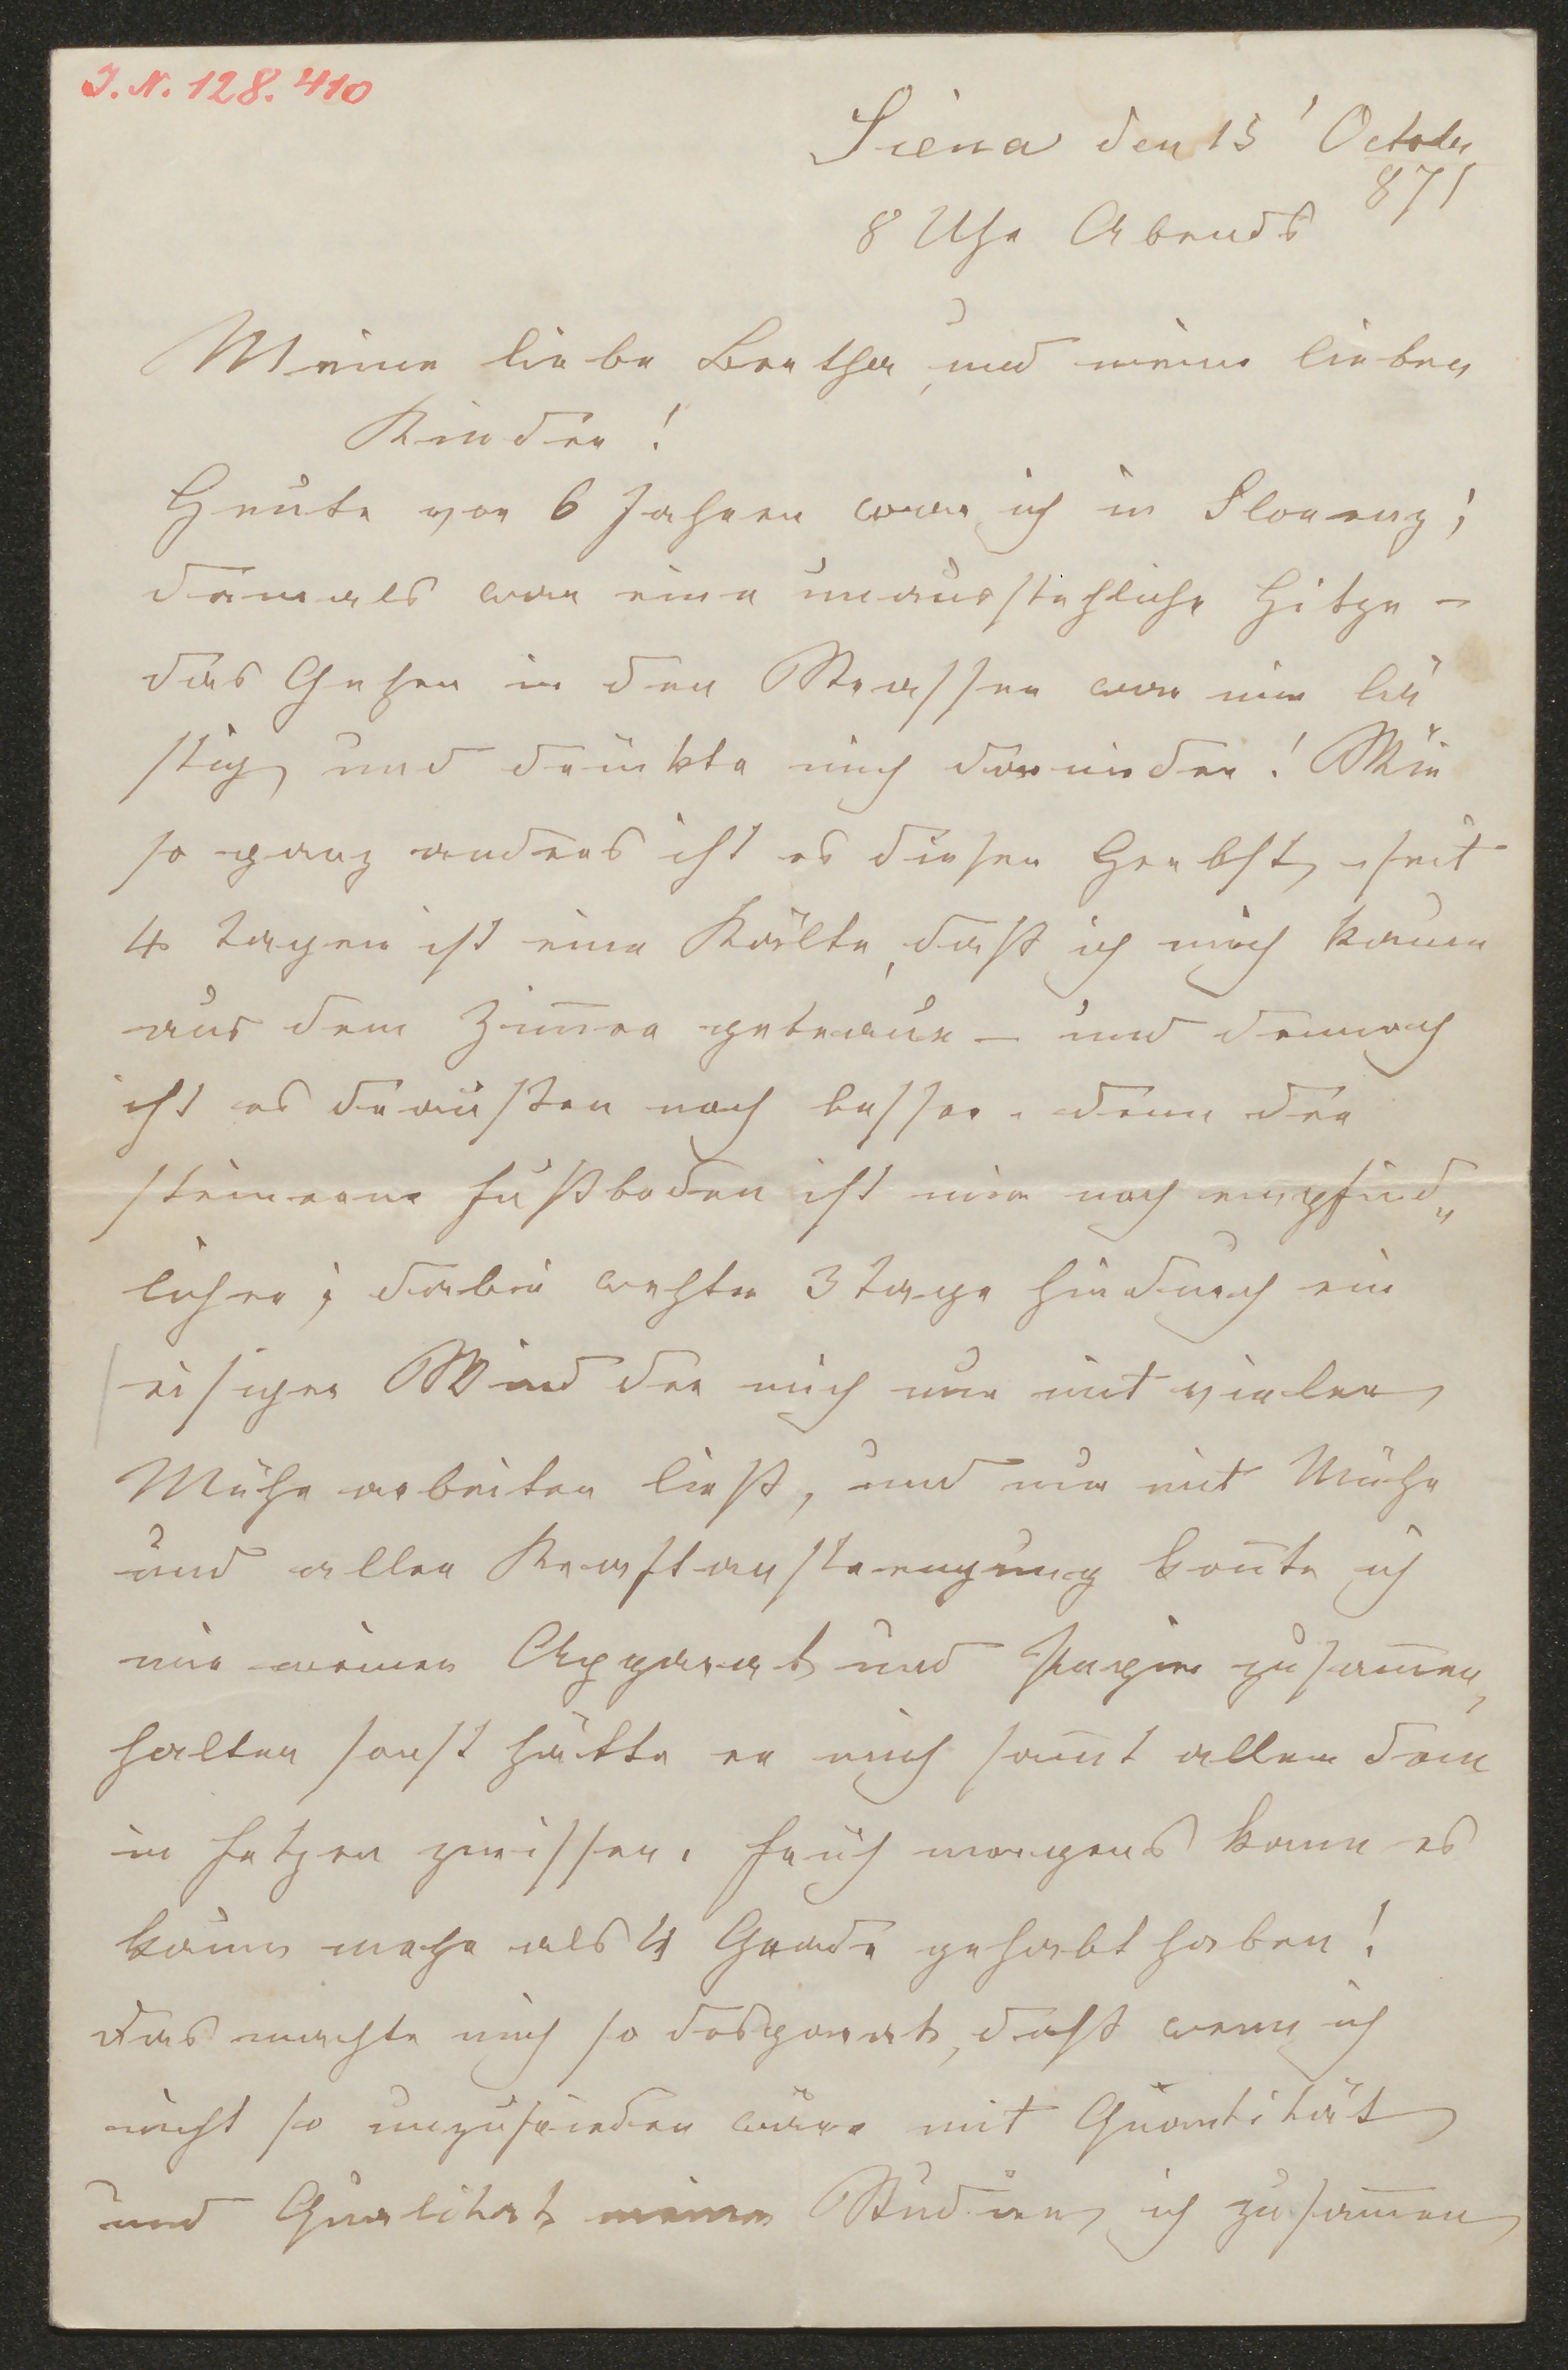 I. N. 128.410
Siena den 15' October
871
8 Uhr Abends
Meine liebe Bertha, und meine lieben
Kinder!
Heute vor 6 Jahren war ich in Florenz;
damals war eine unausstehliche Hitze –
das Gehen in den Strassen war mir lä
stig und drückte mich darnieder! Wie
so ganz anders ist es diesen Herbst, seit
4 Tagen ist eine Kälte, daß ich mich kaum
aus dem Zim̅er getraue – und dennoch
ist es draußen noch besser. denn der
steinerne Fußboden ist mir noch empfind„
licher; dabei wehte 3 Tage hindurch ein
eisiger Wind der mich nur mit vieler
Mühe arbeiten ließ, und nur mit Mühe
und aller Kraftanstrengung kon̅te ich
mir meinen Apparat und Papier zusam̅en
halten sonst hätte er mich sam̅t allem dem
in Fetzen zerissen. Früh morgens kann es
kaum mehr als 4 Grade gehabt haben!
das machte mich so desparat, daß wenn ich
nicht so unzufrieden wäre mit Quantität
und Qualität meiner Studien, ich zusam̅en